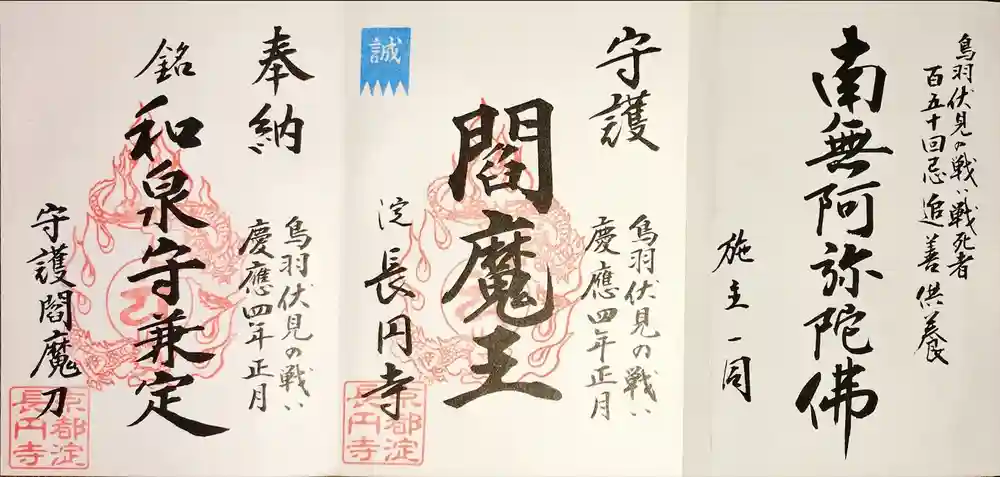 鳥羽伏見の戦い戦死者
百五十回忌追善供養
南無阿弥陀佛
施主一同
守護
鳥羽伏見の戦い
慶應四年正月
閻魔王
誠
淀長円寺
京都淀
長円寺
奉納
鳥羽伏見の戦い
慶應四年正月
銘和泉守兼定
守護閻魔刀
京都淀
長円寺